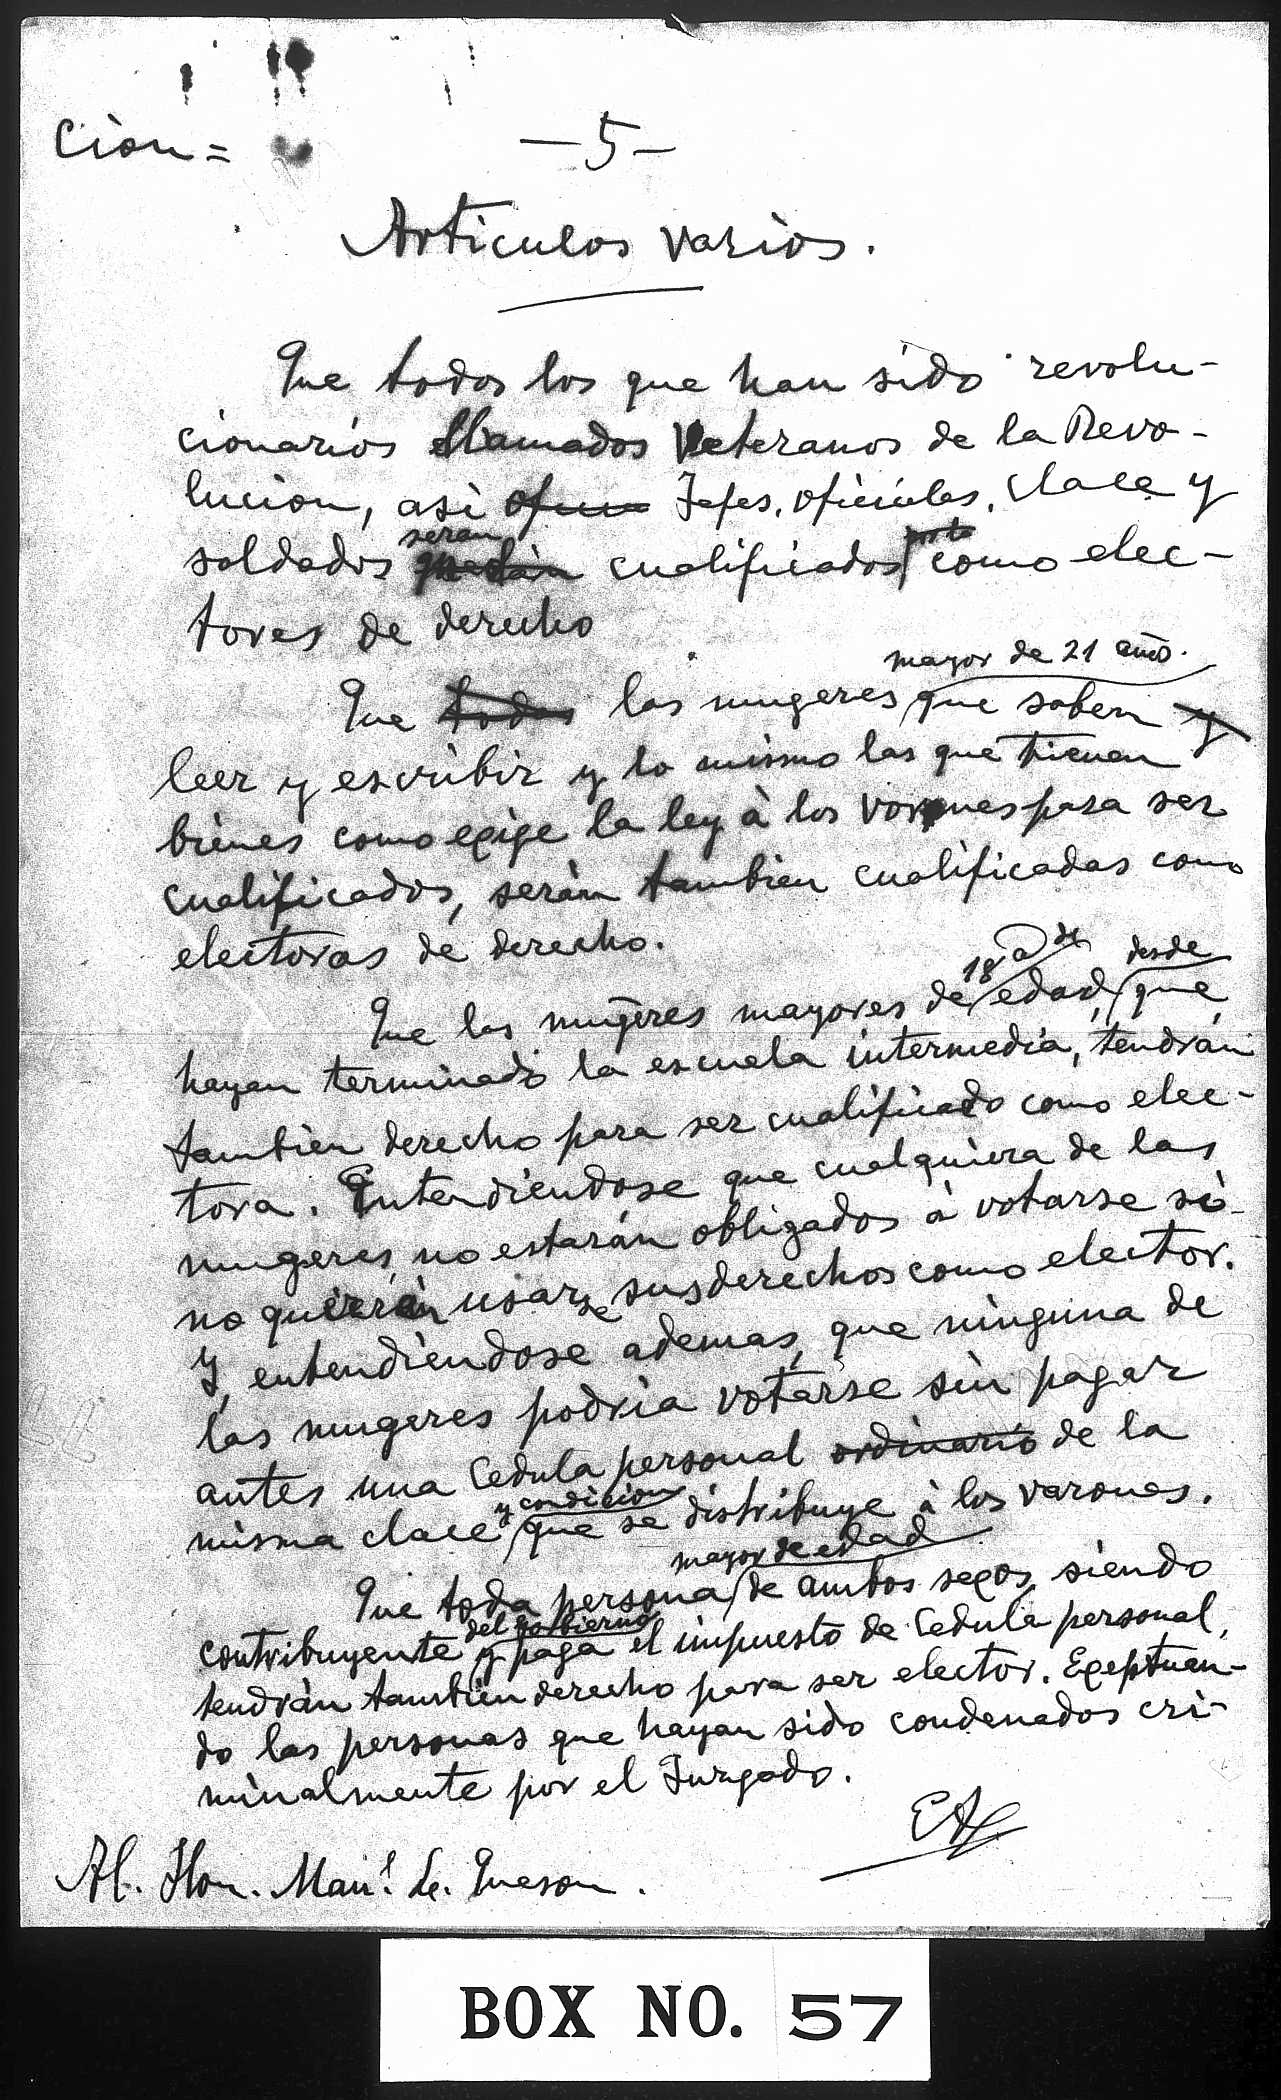 cion =
— 5 —
Articulos varios.
Que todos los que han sido revolu-
cionarios llamados Veteranos de la Revo-
lucion, asi Jefes, oficiales, clace y
seran
soldados cualificados como elec-
tores de derecho
mayor de 21 años.
Que todas las mugeres que saben y
leer y escribir y lo mismo las que tienen
bienes como exige la ley à los varones para ser
cualificados, seràn tambien cualificadas como
electoras de derecho.
18 a de desde
Que las mugeres mayores de edad, que
hayan terminado la escuela intermedia, tendrán
tambien derecho para ser cualificado como elec-
tora. Entendiendose que cualquiera de las
mugeres, no estarán obligados à votarse si
no quierén usarse sus derechos como elector.
Y, entendiendose ademas, que ninguna de
las mugeres podria votarse sin pagar
antes una Cedula personal ordinario de la
y condicion
misma clace que se distribuye à los varones.
mayor de edad
Que toda persona de ambos sexos, siendo
del gobierno
contribuyente y paga el impuesto de Cedula personal,
tendràn tambien derecho para ser elector. Exeptuan-
do las personas que hayan sido condenados cri-
minalmente por el Juzgado.
EA
Al. Hon. Man.l L. Queson.
BOX NO. 57